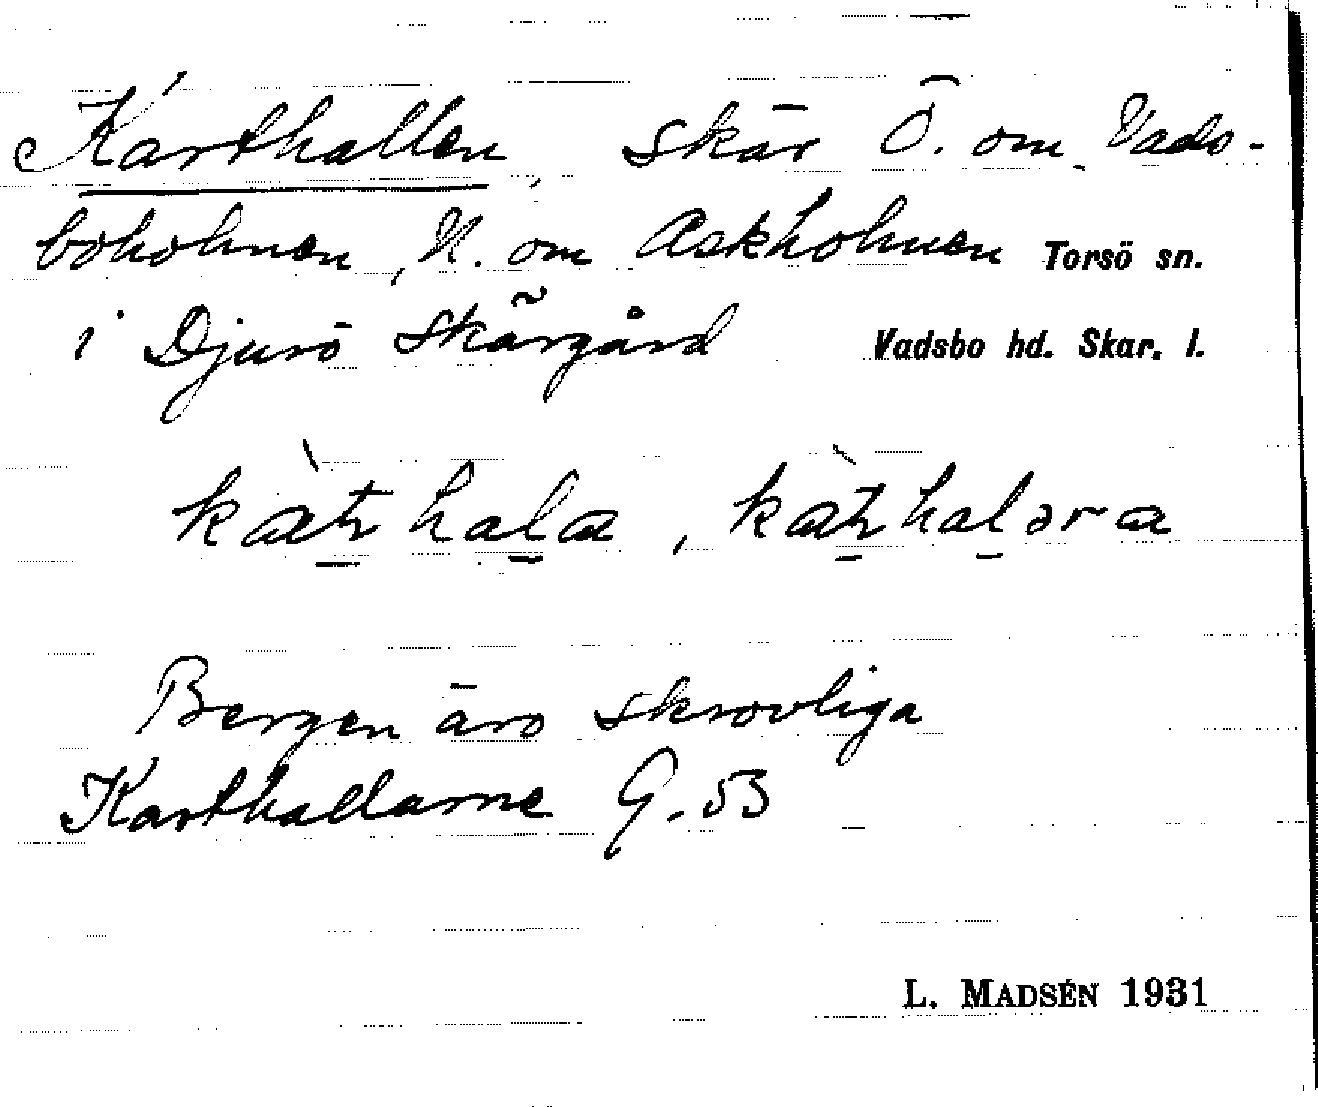 Karthallen, skär Ö. om Vads-
boholmen, N. om Askholmen Torsö sn.
i Djurö skärgård Vadsbo hd. Skar. l.
kàthala, kàthaləra
Bergen äro skrovliga
Karthallarne G. 53
L. MADSÉN 1931